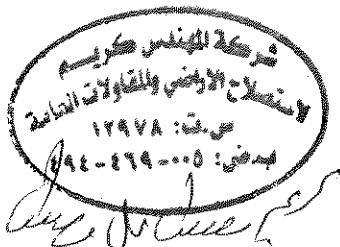 شركة المهندس كريم
لاستصلاح الأراضي والمقاولات العامة
س.ت: ١٢٩٧٨
٤٩٤-٤٦٩-٠٠٥